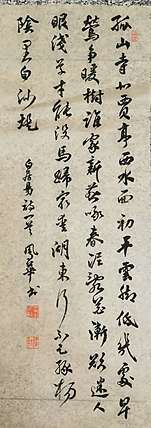 孤山寺北賈亭西水面初平雲腳低幾處早
鶯爭暖樹誰家新燕啄春泥亂花漸欲迷人
眼淺草才能沒馬蹄最愛湖東行不足綠楊
陰里白沙堤
白居易詩一首 鳳華書